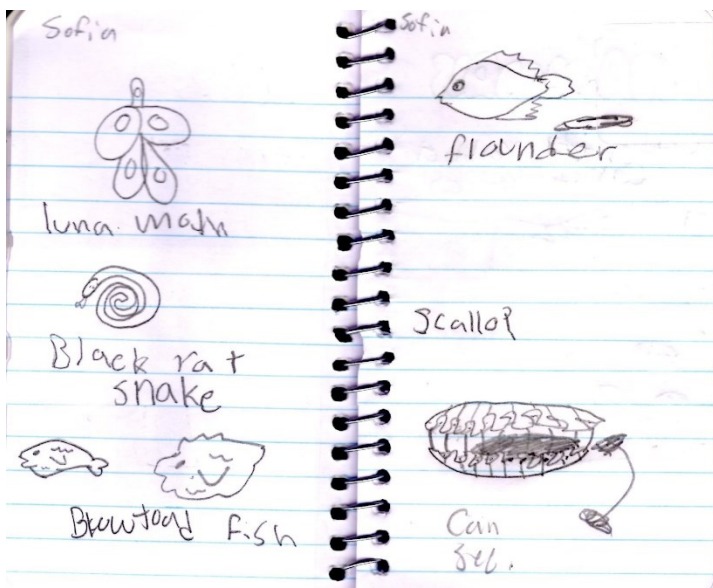 Sofia
luna moth
Black rat
snake
Blowtoad fish
Sofia
flounder
scallop
Can
see.